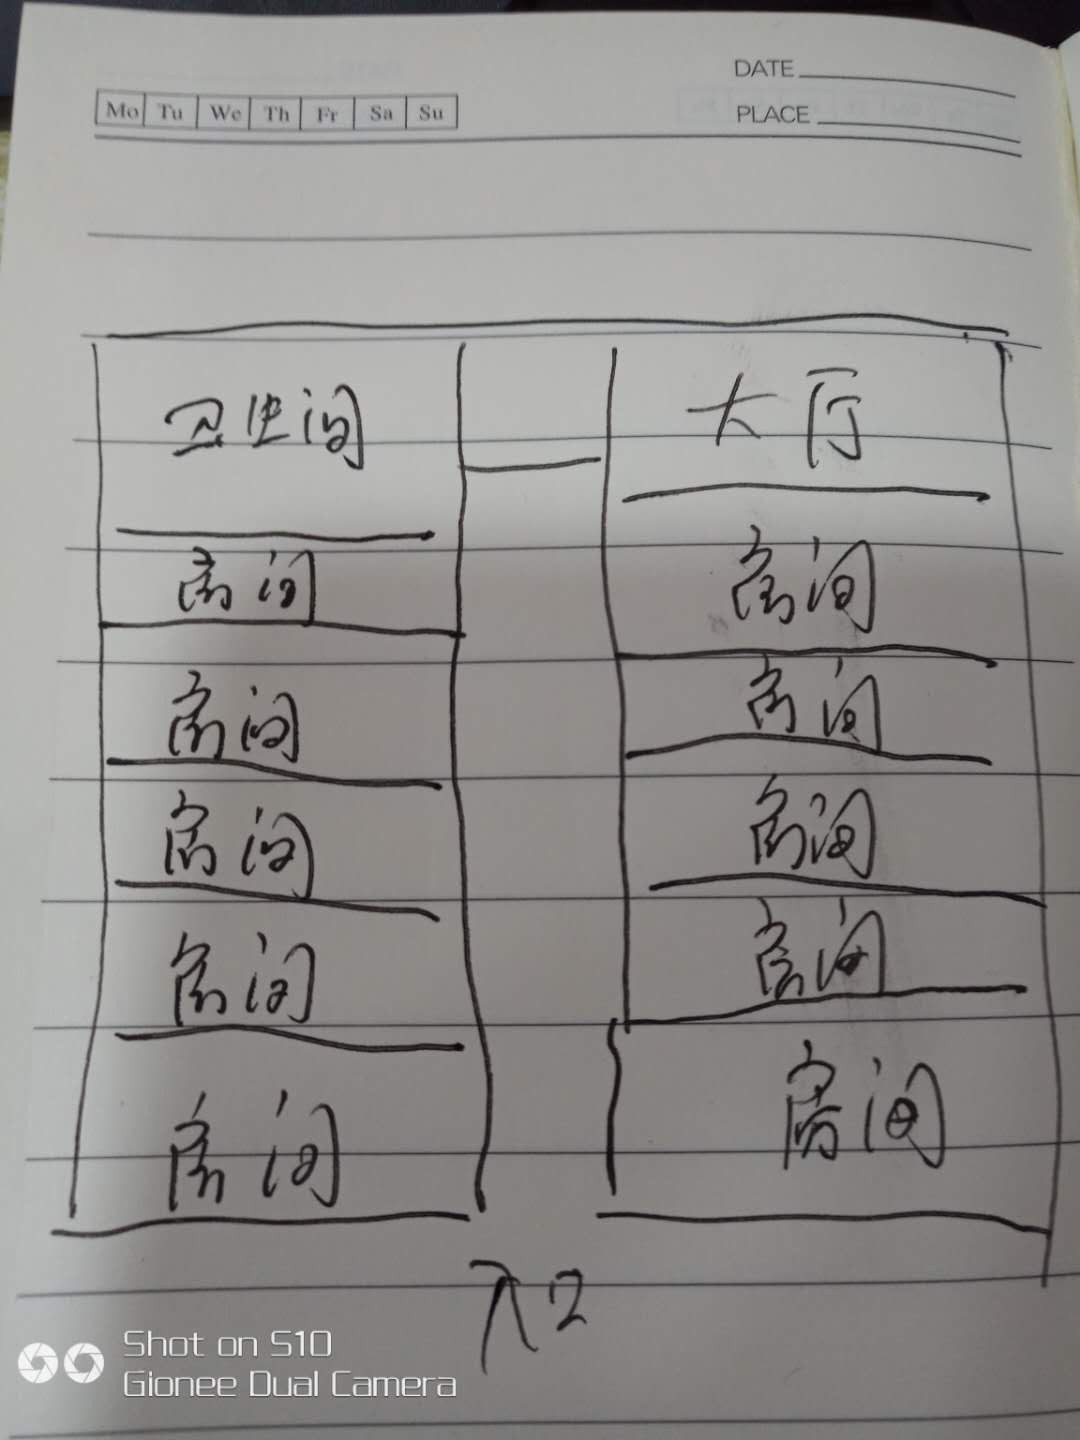 DATE
Mo Tu We Th Fr Sa Su
PLACE
卫生间
大厅
房间
房间
房间
房间
房间
房间
房间
房间
房间
房间
入口
Shot on S10
Gionee Dual Camera